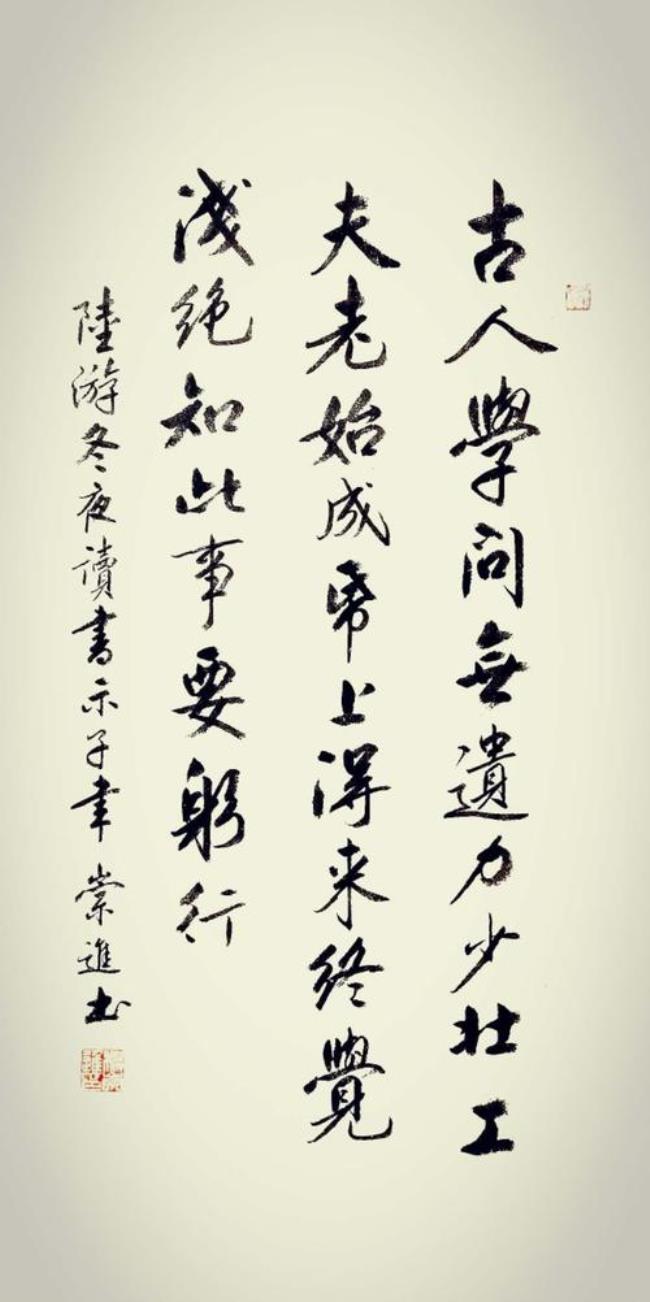 古人學問無遺力少壮工
夫老始成帋上得来終覺
浅絶知此事要躬行
陸游冬夜讀書示子聿 崇進书